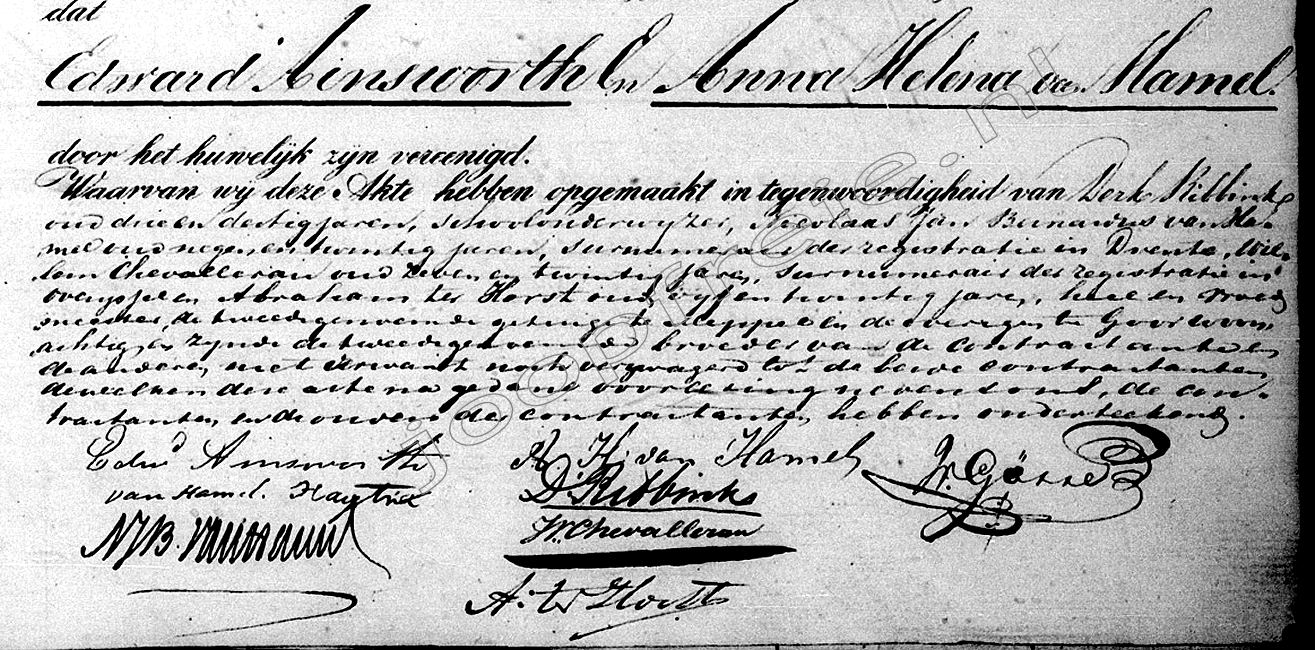 dat
Edward Ainsworth En Anna Helena van Hamel.
door het huwelijk zijn vereenigd.
Waarvan wij deze Akte hebben opgemaakt in tegenwoordigheid van Derk Ribbink
oud drie en dertig jaren, schoolonderwyzer, Nicolaas Jan Bernardus van Ha-
mel oud negen en twintig jaren, surnumerair der registratie in Drente, Wil-
lem Chevallerau oud zeven en twintig jaren, surnumerair der registratie in
Overyssel en Abraham ter Horst oud vyf en twintig jaren, heel en vroed
meester, de tweedegenoemde getuige te Meppel en de overigen te Goor woon
achtig, zynde de tweedegenoemde broeder van de contractante en
de anderen niet verwant noch verzwagerd tot de beide contractanten
dewelken deze acte na gedane voorlezing nevens ons, de con-
tractanten en de ouders der contractante, hebben onderteekend.
Edwd Ainsworth
A H. van Hamel
van Hamel.
D. Ribbink
W. Chevallerau
A. ter Horst
joopree.nl